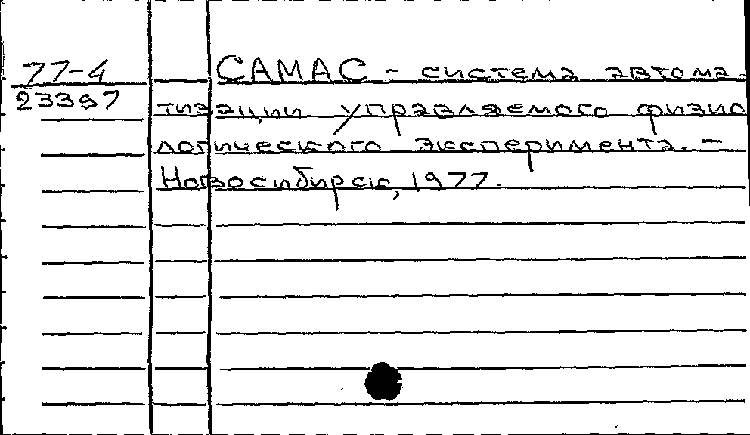 77-4
23397
САМАС - система автома-
тизации управляемого физио
логического эксперимента. -
Новосибирск, 1977.